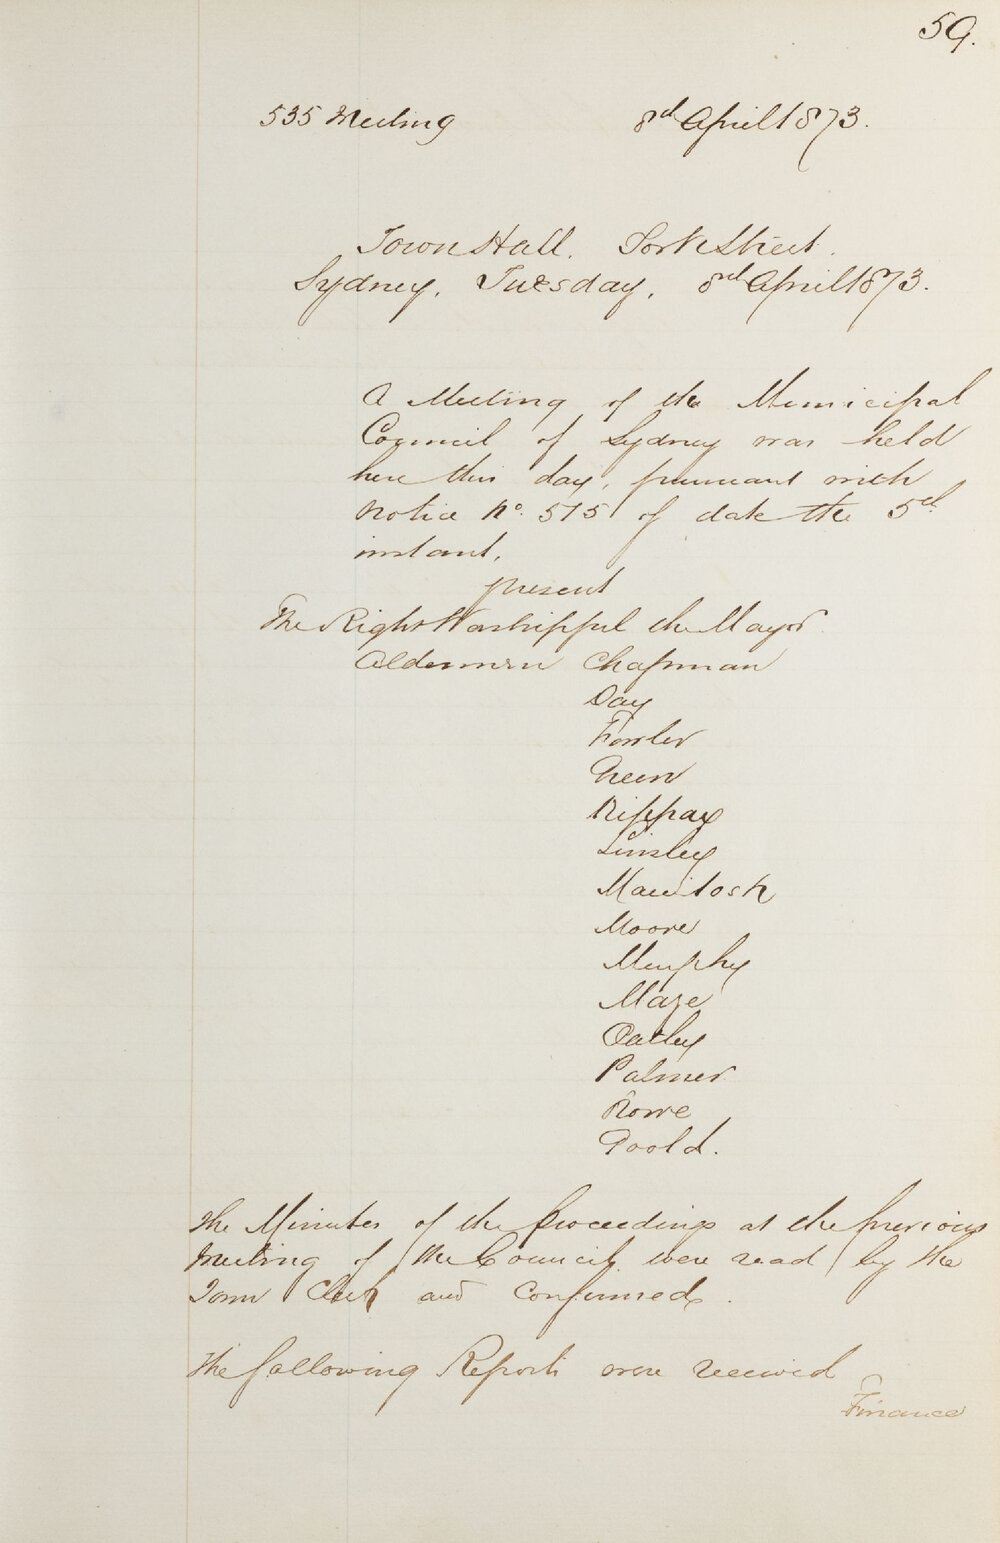 59.
535 Meeting 8th April 1873.
Town Hall. York Street.
Sydney, Tuesday, 8th April 1873.
A Meeting of the Municipal
Council of Sydney was held
here this day, pursuant with
Notice No. 515 of date the 5th
instant.
present
The Right Worshipful the Mayor
Aldermen Chapman
Day
Fowler
Green
Kippax
Linsley
Macintosh
Moore
Murphy
Maze
Oatley
Palmer
Rowe
Goold.
The Minutes of the proceedings at the previous
Meeting of the Council were read by the
Town Clerk and Confirmed.
The following Reports were received
Finance